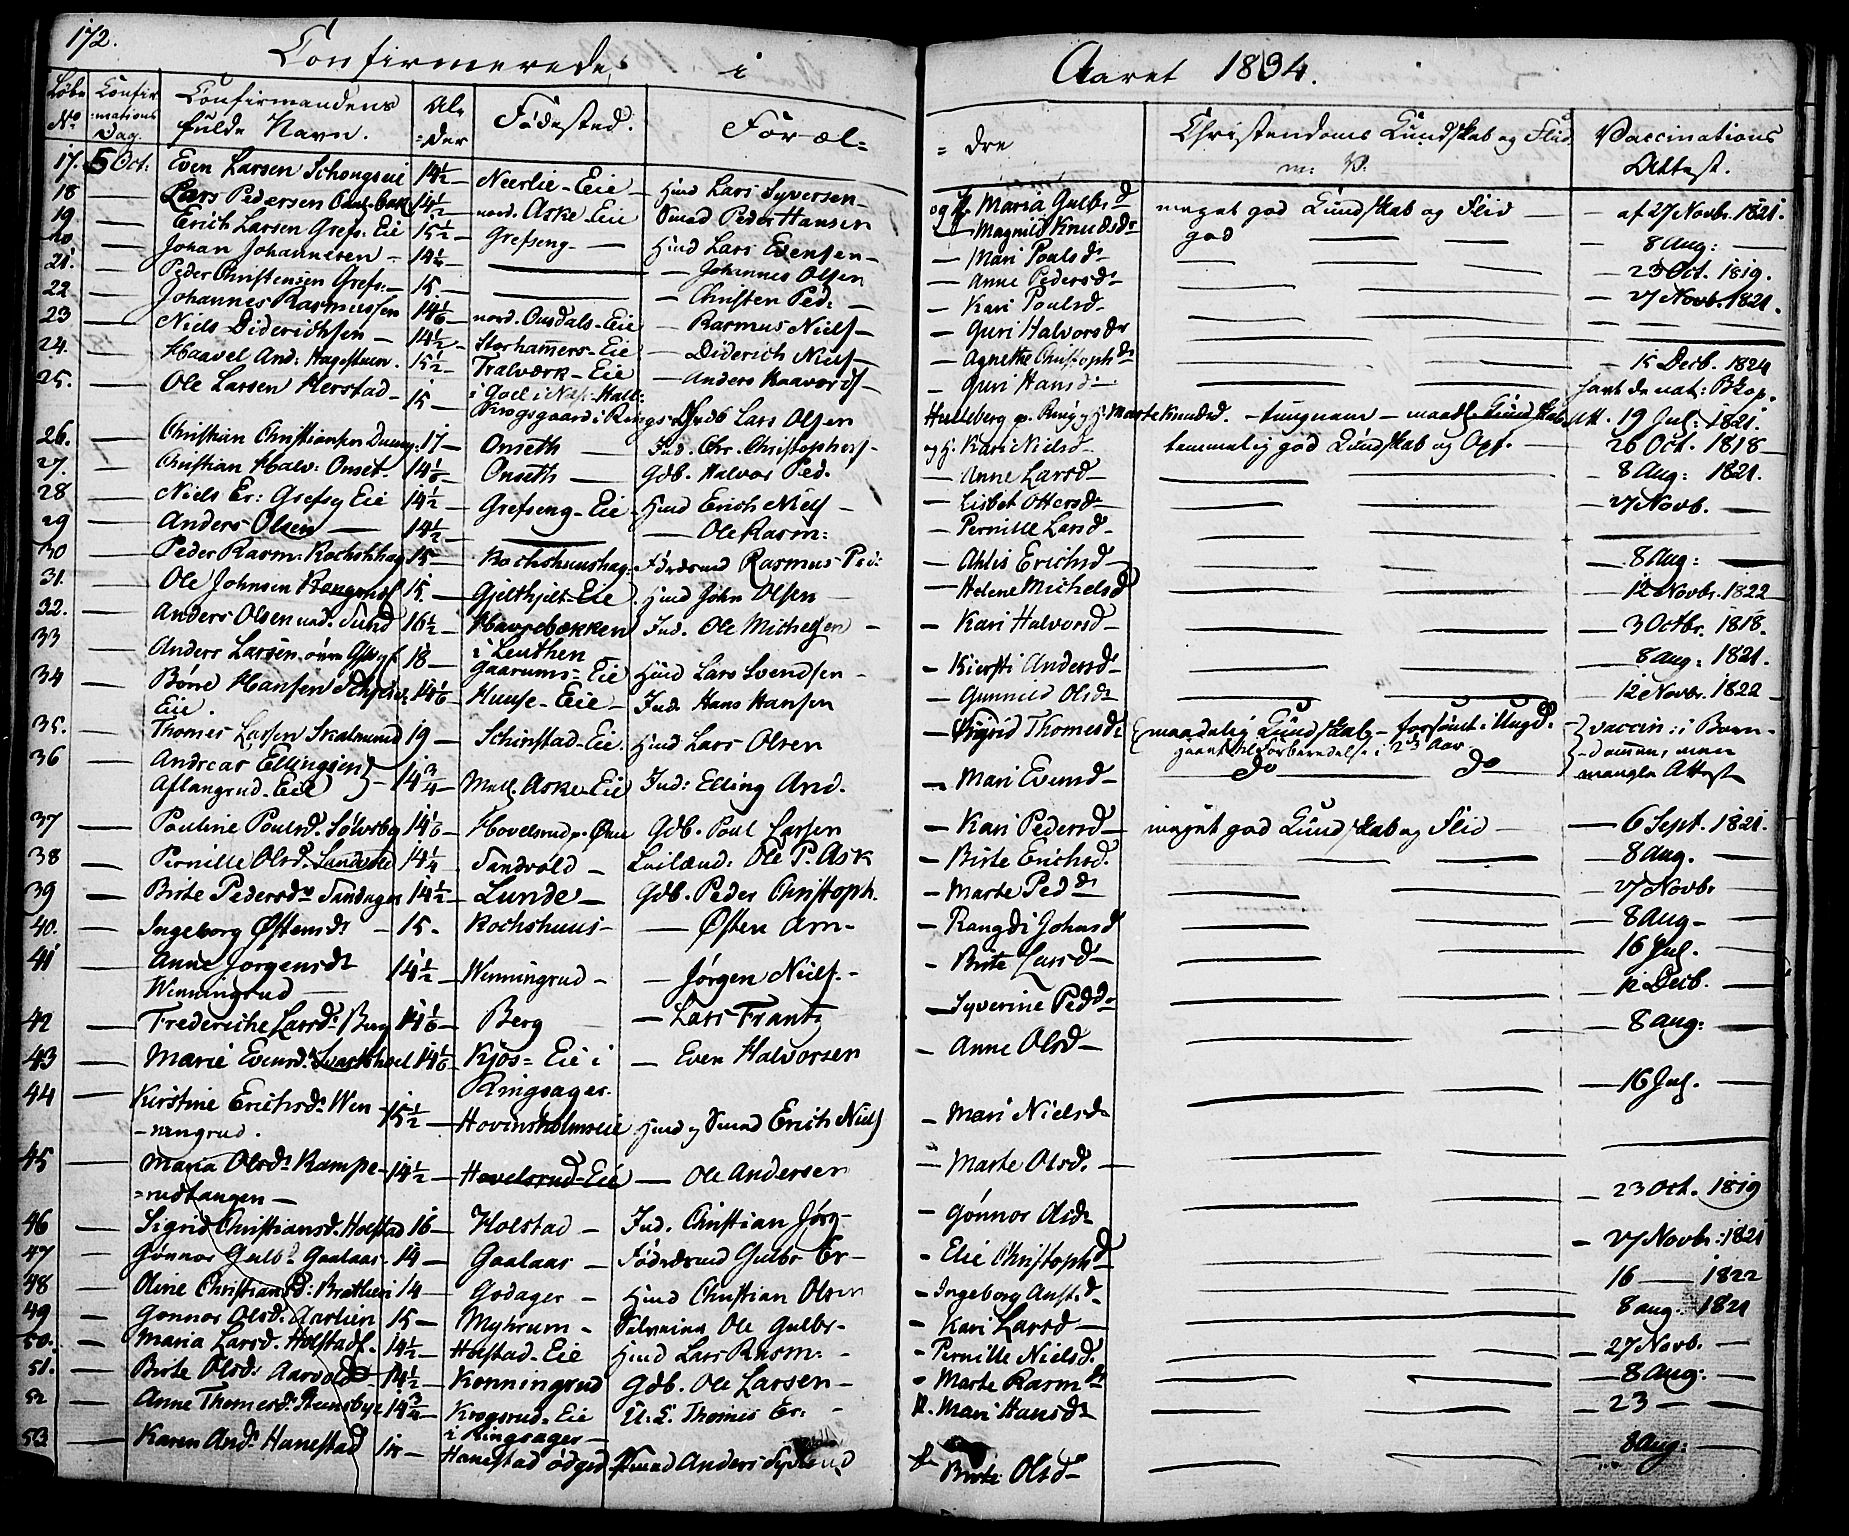 172.
Confirmerede i Aaret 1834.
Løbe No Confirmations Dag. Confirmandens fulde Navn. Alder Födested. Foræl= =dre Christendoms Kundskab og Flid Vaccinations Attest.
17. 5 Oct: Even Larsen Schongseie 14½ Neerlie-Eie Huusd Lars Syversen og H. Maria Gulbr.d meget god Kundskab og Flid af 27 Novbr. 1821.
18 Lars Pedersen 14½ nord. Aske-Eie Smed Peder Hansen Magnild Knudsd. god 8 Aug:
19. Erich Larsen Grefs: Eie 15½ Grefseng Huusd Lars Evensen Mari Poulsd. 23 Oct. 1819.
20. Johan Johannesen 14½ Johannes Olsen Anne Pedersd. 27 Novb. 1821.
21. Peder Christensen Grefs: 15 Christen Ped: Kari Poulsd.
22 Johannes Rasmussen nord. Onsdals-Eie Rasmus Niels Guri Halvorsd.
23 Niels Diderichsen 14½ Storhamers-Eie Diderich Niels Agnethe Christophd. 15 Decb. 1824
24. Haavel And: Hagestuen. 15½ Tralværk-Eie Anders Haavords Guri Hansd.
25. Ole Larsen Herstad 15 i Goel i Næs: Hall: Krogsgaard i Rings. Lars Olsen Marte Knudsd. tungnem maadl. Kundskab Att. 19 Jul: 1821.
26. Christian Christiansen 17 Onseth Ind. Chr. Christophers og H. Kari Nielsd. temmelig god Kundskab og Opf. 26 Oct. 1818
27. Christian Halv: Onset. Onseth Gdb. Halvor Ped. Anne Larsd. 8 Aug: 1821.
28 Niels Er: Grefsg Eie 14½ Grefseng-Eie Huusd Erich Niels Lisbet Ottersd. 27 Novb.
29 Anders Olsen 14½ Ole Rasm: Pernille Larsd.
30 Peder Rasm: Rochshhag 15 Rochshuushag: Föderaad Rasmus Ped: Ahlis Erichsd. 8 Aug:
31. Ole Johnsen 15. Gjelthjelt-Eie Huusd John Olsen Helene Michelsd 12 Novbr. 1822
32. Anders Olsen nord. Sund 16½ Havrebækken i Leuthen Ind. Ole Michelsen Kari Halvorsd. 3 Octbr. 1818.
33 Anders Larsen 18 Gaarums-Eie Huusd Lars Svendsen Kiersti Andersd. 8 Aug: 1821.
34 Börre Hansen Eie. Huuse-Eie Ind. Hans Hansen Gunneld Olsd. 12 Novbr. 1822
35. Thomes Larsen Skalmrud 19 Schinstad-Eie. Huusd Lars Olsen Sigrid Thomesd. maadelig Kundskab forsömt i Ungd. gaaet til Forberedelse i 2d Aar vaccin: i Barndommen, men mangler Attest
36 Andreas Ellingsen Aslangrud-Eie 14¾ Mell. Aske-Eie Ind: Elling And. Mari Evensd. do do
37 Pauline Poulsd. Sölvsby Hovelsrud p. Öen Gdb. Poul Larsen Kari Pedersd. meget god Kundskab og Flid 6 Sept. 1821.
38 Pernille Olsd. Sandvold 14¼ Sandvold Leilænd: Ole P. Ask Birte Erichsd. 8 Aug.
39 Birte Pedersd. Sandager 14½ Lunde Gdb. Peder Christoph. Marte Ped.d. 27 Novbr
40. Ingeborg Östensd. 15. Rochshuus Östen Arn. Rangdi Johnsd 8 Aug
41 Anne Jorgensd. Winningrud 14½ Winningrud Jörgen Niels. Birte Larsd. 16 Jul.
42 Frederiche Larsd. Berg Berg Lars Frantz Syverine Ped.d. 12 Decb.
43 Marie Evensd. Kjos-Eie i Ringsager Even Halvorsen Anne Olsd. 8 Aug:
44 Kirstine Erichsd. Wenningrud. 15½ Hovinsholmseie Huusd og Smed Erich Niels Mari Nielsd. 16 Jul.
45 Maria Olsd. Rampe=rudtangen 14½ Hovelsrud-Eie Ole Andersen Marte Olsd.
46 Sigrid Christiansd. Holstad 16 Holstad Ind. Christian Jörg Gönnor Olsd. 23 Oct. 1819
47 Gönnor Gulb.d. Gaalaas 14 Gaalaas Föderaad Gulbr Er Elie Christophd. 27 Novbr. 1821
48 Oline Christiansd: Bratlien 14 Godager Huusd Christian Olsen Ingeborg Anst.d. 16 1822
49 Gonnor Olsd. Aaslien 15 Myhrum Ole Gulbr Kari Larsd. 8 Aug. 1821
50. Maria Larsd. Holstade. 14½ Holstad-Eie Huusd Lars Rasm: Pernille Nielsd. 27 Novb.
51. Birte Olsd. Aarvold 14½ Konningrud Gdb. Ole Larsen Marte Rasm.d. 8 Aug:
52 Anne Thomesd. 14¾ Krogsrud-Eie i Ringsager U: S. Thomes Er: Mari Hansd. 23
53 Karen And. Hanestad 15 Hanestad ödegd Smed Anders Birte Olsd. 8 Aug: